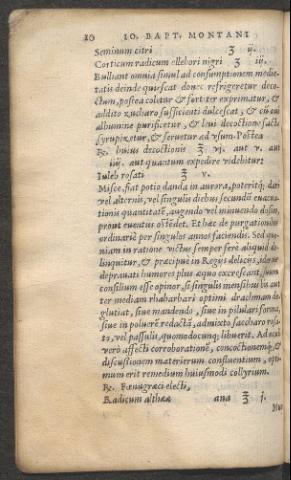 10 IO. BAPT. MONTANI
Seminum citri ℥ ij.
Corticum radicum ellebori nigri ℥ iij.
Bulliant omnia simul ad consumptionem medie-
tatis deinde quiescat donec refrigeretur deco-
ctum, postea colatur & fortiter exprimatur, &
addito zucharo sufficienti dulcescat, & cũ oui
albumine purificetur, & leui decoctione facta
syrupizetur, & seruetur ad vsum. Postea
℞. huius decoctionis ℥ vi. aut v. aut
iiij. aut quantum expedire videbitur:
Iuleb rosati ℥ v.
Misce, fiat potio danda in aurora, poteritq; dari
vel alternis, vel singulis diebus secundũ euacua-
tionis quantitatẽ, augendo vel minuendo dosim,
prout euentus ostẽdet. Et hæc de purgationibus
ordinariè per singulos annos faciendis. Sed quo-
niam in ratione victus semper ferè aliquid de-
linquitur, & præcipuè in Regijs delicijs, ideo ne
deprauati humores plus æquo excrescant, suum
consilium esse opinor, si singulis mensibus bis aut
ter mediam rhabarbari optimi drachmam de-
glutiat, siue mandendo, siue in pilulari forma,
siue in puluerẽ redactã, admixto saccharo rosa-
to, vel passulis, quomodocunq; libuerit. Ad oculi
verò affecti corroborationẽ, concoctionemq; &
discussionem materierum confluentium, opti-
mum erit remedium huiusmodi collyrium.
℞. Fœnugræci electi,
Radicum altheæ ana ℥ j.